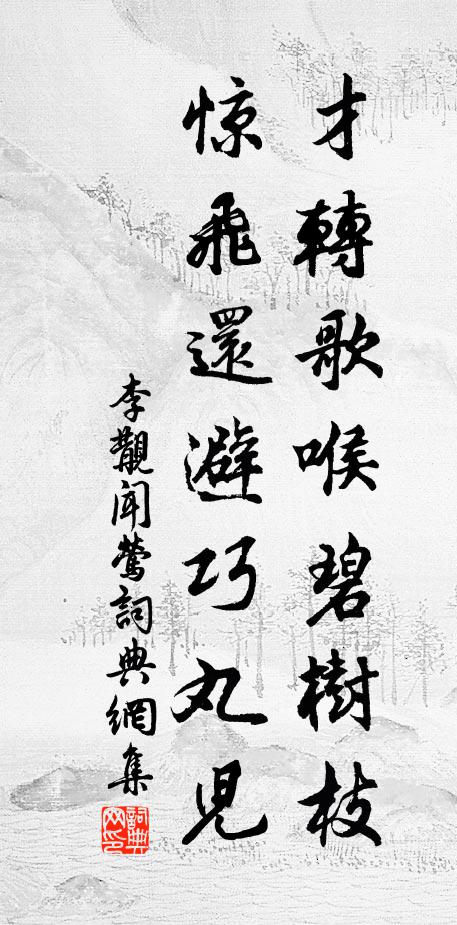 才轉歌喉碧樹枝
惊飛還避巧丸児
李觀闻鶯詞典網集
詞典网印